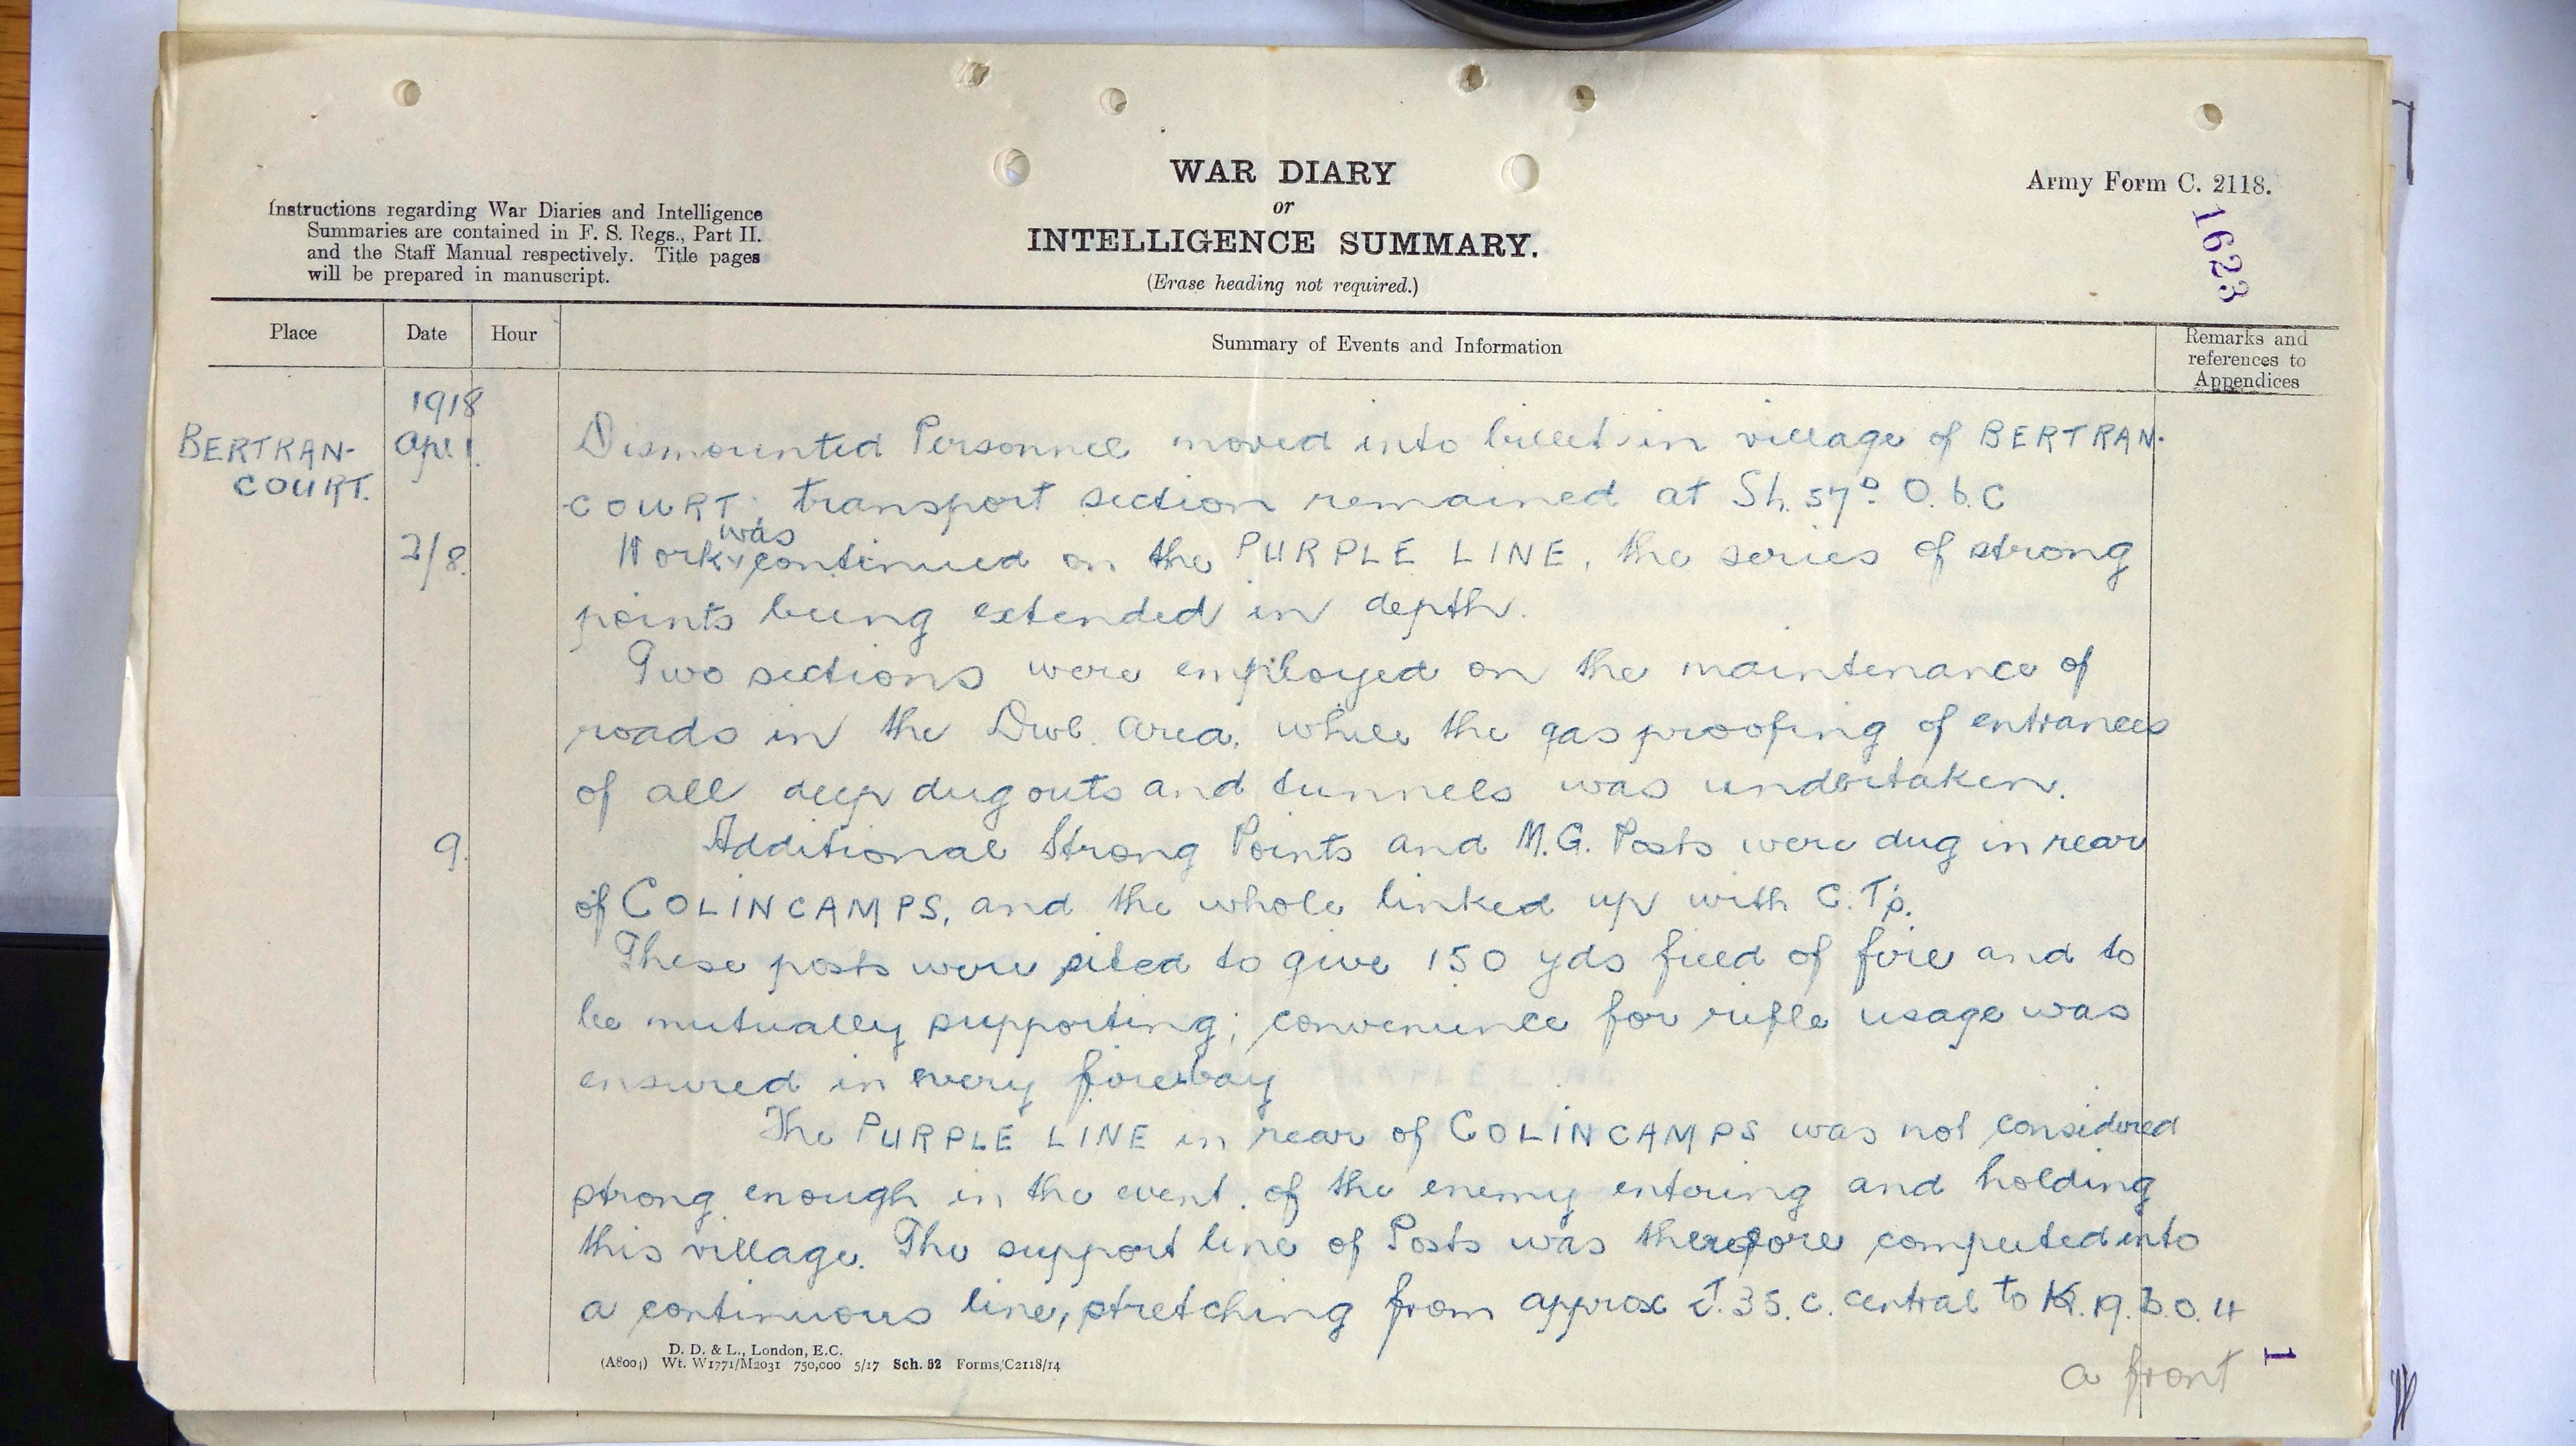 WAR DIARY
or
INTELLIGENCE SUMMARY.
(Erase heading not required.)
Army Form C. 2118.
1623
Instructions regarding War Diaries and Intelligence
Summaries are contained in F. S. Regs., Part II.
and the Staff Manual respectively. Title pages
will be prepared in manuscript.
Place Date Hour Summary of Events and Information Remarks and references to Appendices
1918
BERTRAN- Apl 1. Dismounted Personnel moved into billets in village of BERTRAN-
COURT. -COURT; transport section remained at Sh. 57D O.6.C
was
2/8. Work continued on the PURPLE LINE, the series of strong
points being extended in depth.
Two sections were employed on the maintenance of
roads in the Divl. area. while the gas proofing of entrances
of all deep dug outs and tunnels was undertaken.
9. Additional Strong Points and M.G. Posts were dug in rear
of COLINCAMPS, and the whole linked up with C.T's.
These posts were sited to give 150 yds field of fire and to
be mutually supporting; convenience for rifle usage was
ensured in every firebay
The PURPLE LINE in rear of COLINCAMPS was not considered
strong enough in the event of the enemy entering and holding
this village. The support line of Posts was therefore completed into
a continuous line, stretching from approx J.35.c. central to K.19.B.0.4
a front
D. D. & L., London, E.C.
(A8001) Wt. W1771/M2031 750,000 5/17 Sch. 52 Forms/C2118/14
1